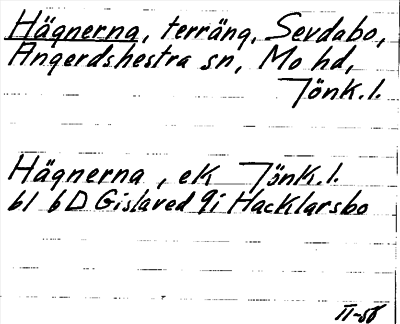 Hägnerna, terräng, Sevdabo,
Ångerdshestra sn, Mo hd,
Jönk.l.
Hägnerna, ek Jönk.l.
bl 6D Gislaved 9i Hacklarsbo
II-58